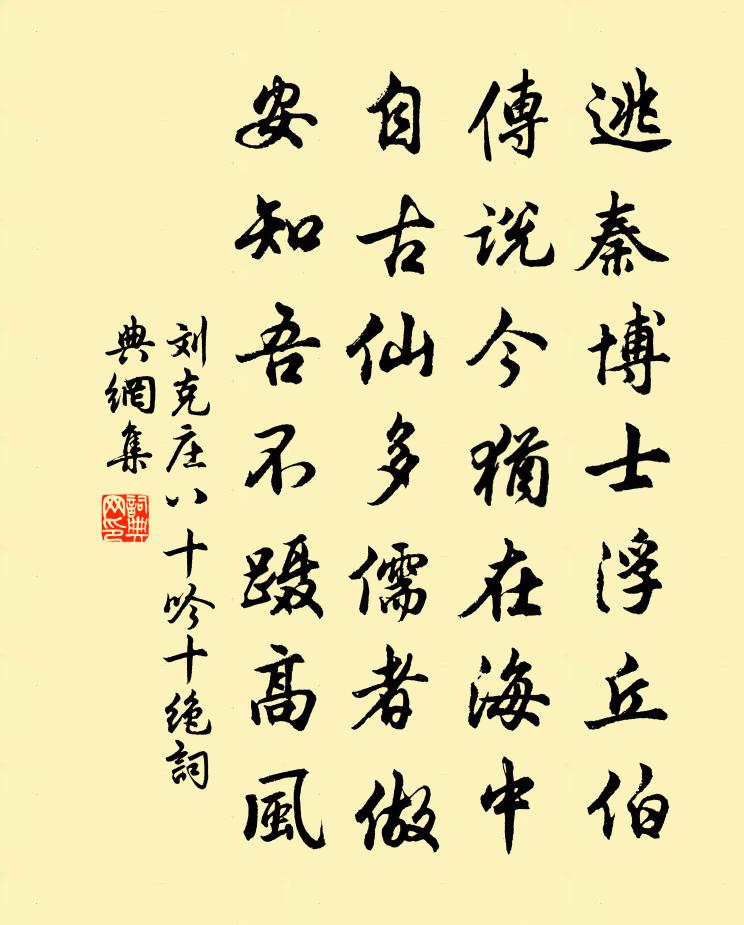 逃秦博士浮丘伯
傳说今猶在海中
自古仙多儒者做
安知吾不蹑高風
刘克庄八十吟十绝詞
典網集
詞典網印